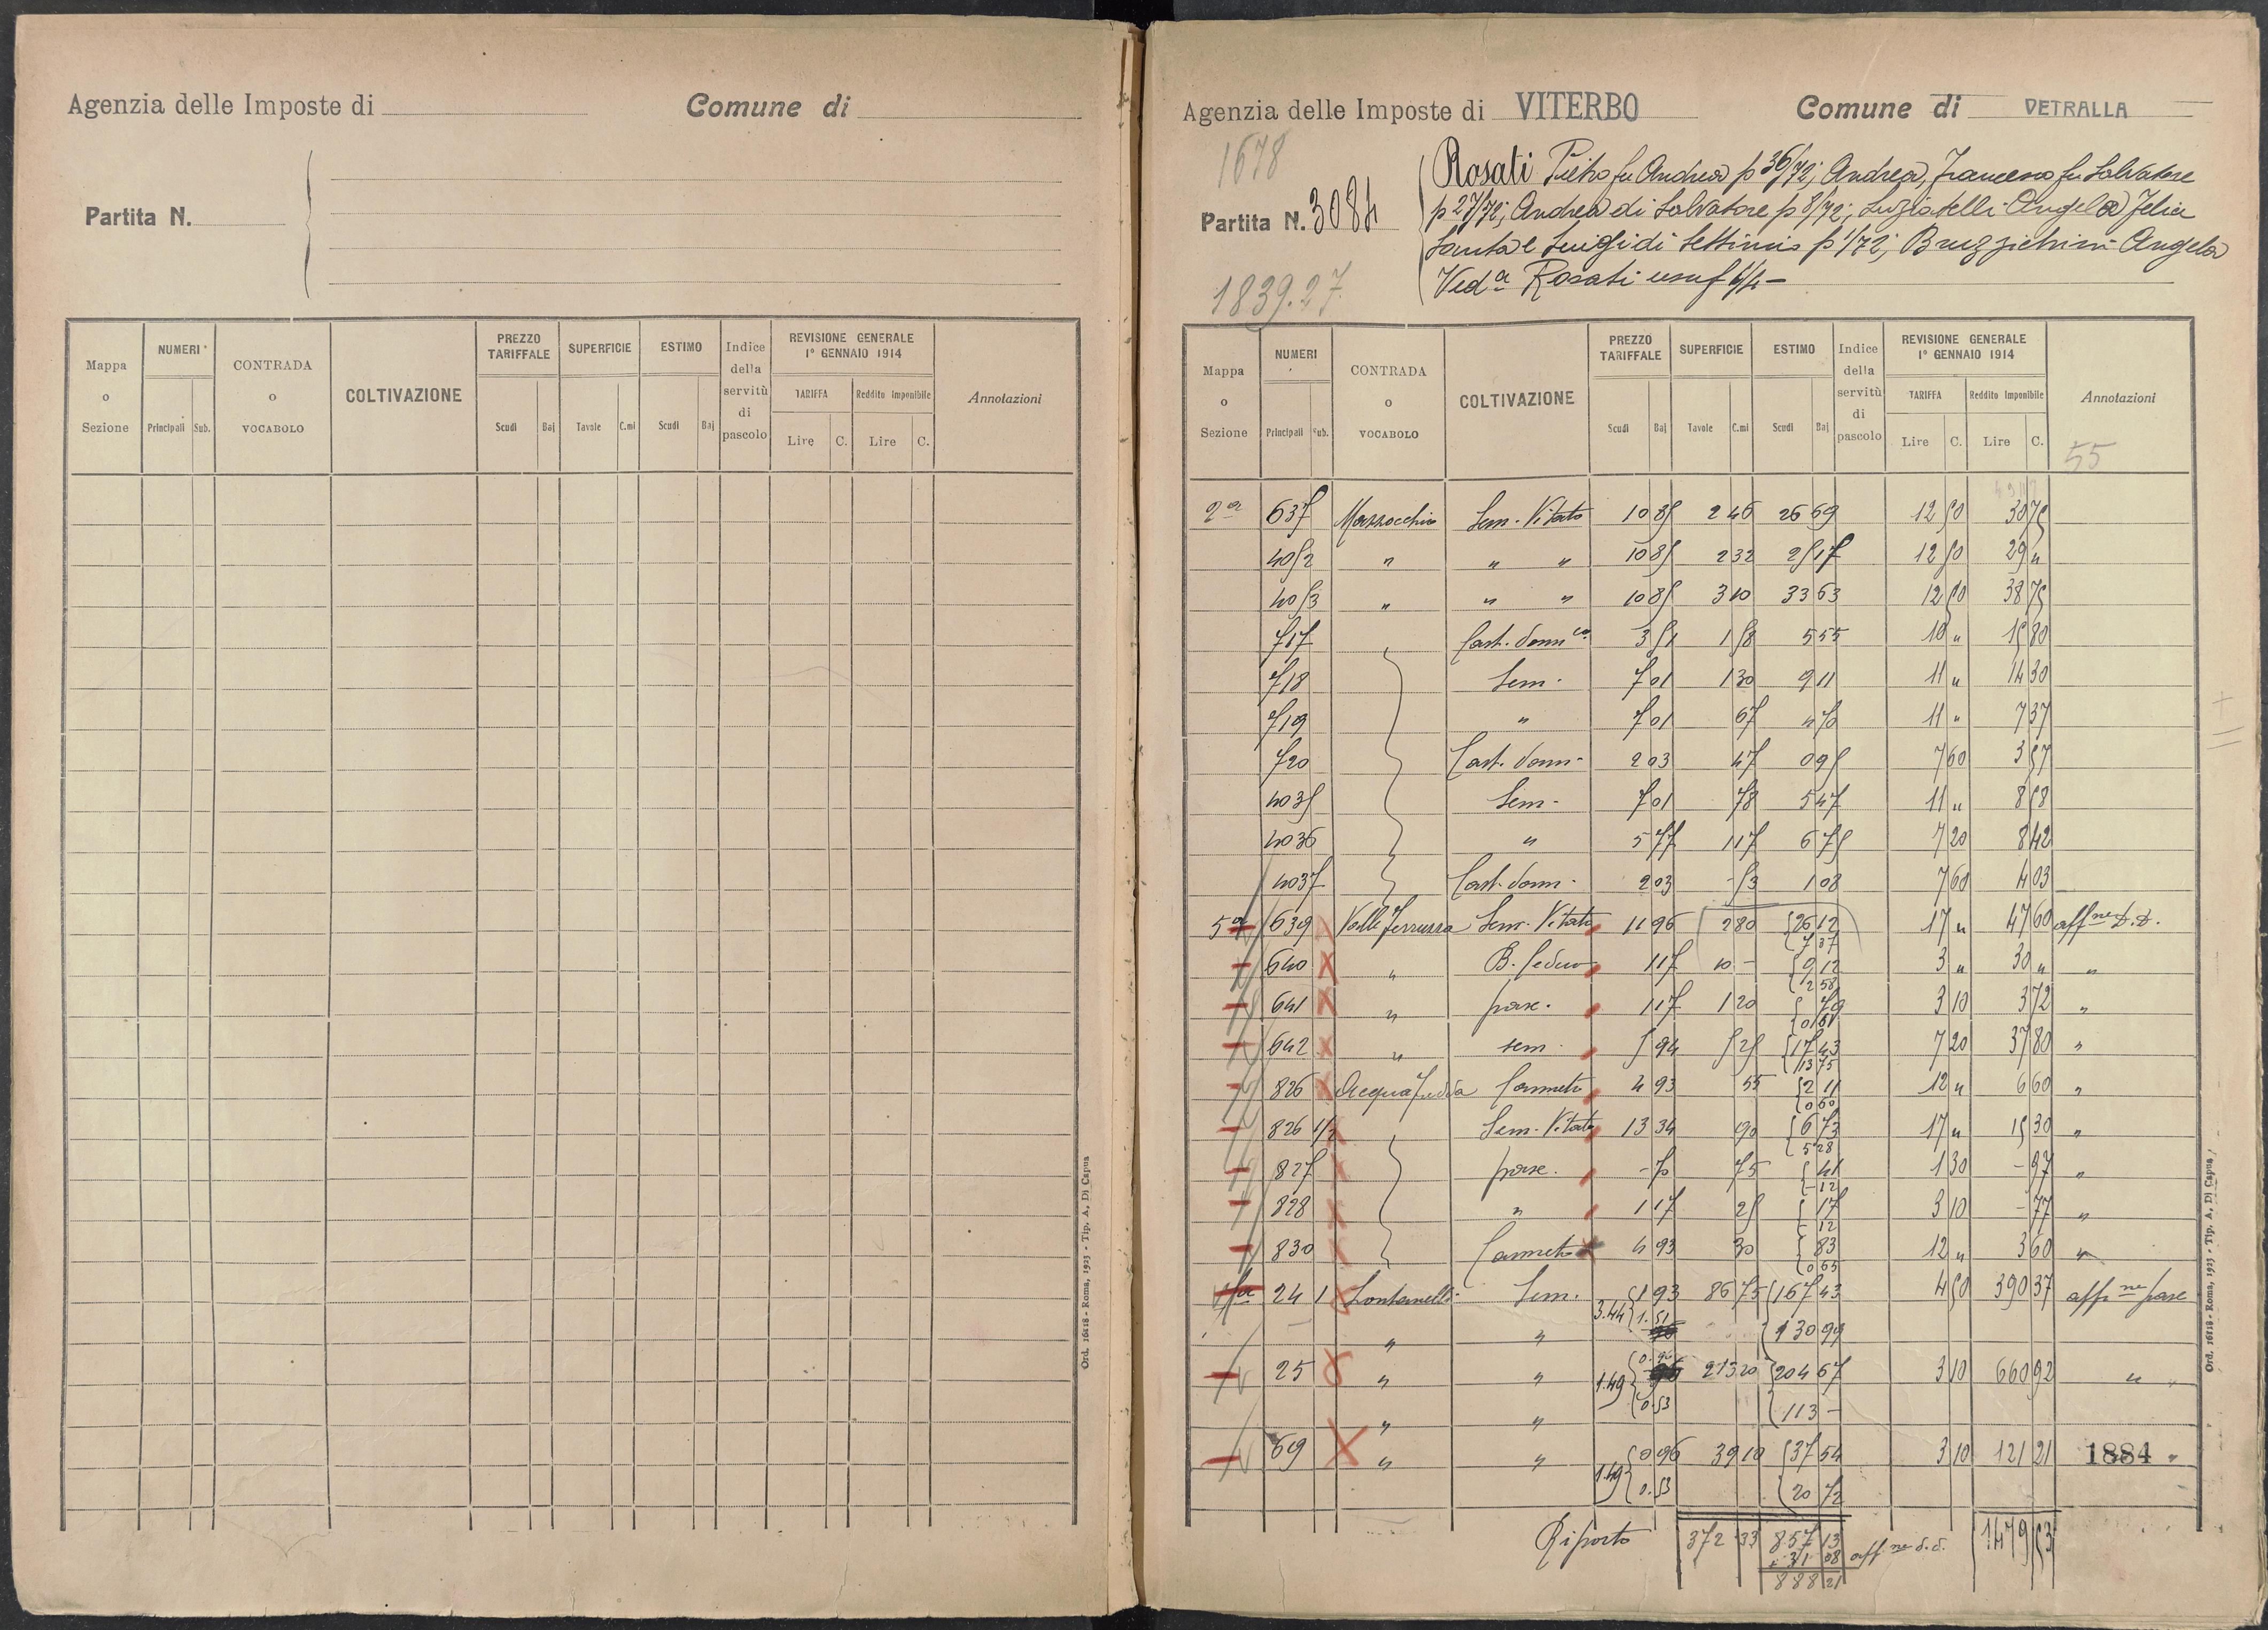 Agenzia delle Imposte di
Comune di
Partita N.
Mappa o Sezione
NUMERI
Principali
Sub.
CONTRADA o VOCABOLO
COLTIVAZIONE
PREZZO TARIFFALE
Scudi
Baj
SUPERFICIE
Tavole
C.mi
ESTIMO
Scudi
Baj
Indice della servitù di pascolo
REVISIONE GENERALE
1° GENNAIO 1914
TARIFFA
Lire
C.
Reddito Imponibile
Lire
C.
Annotazioni
Ord. 16818 - Roma, 1923 - Tip. A. Di Capua
Agenzia delle Imposte di VITERBO
Comune di VETRALLA
1678
Partita N. 3084
1839.27
Rosati Pietro fu Andrea p 36/72; Andrea, Francesco fu Salvatore
p 27/72; Andrea di Salvatore p 8/72; Luziatelli Angela Felia
Santa e Luigi di Settimio p 1/72; Bruzzichini Angela
Ved.a Rosati usuf
Mappa o Sezione
NUMERI
Principali
Sub.
CONTRADA o VOCABOLO
COLTIVAZIONE
PREZZO TARIFFALE
Scudi
Baj
SUPERFICIE
Tavole
C.mi
ESTIMO
Scudi
Baj
Indice della servitù di pascolo
REVISIONE GENERALE
1° GENNAIO 1914
TARIFFA
Lire
C.
Reddito Imponibile
Lire
C.
Annotazioni
55
2a 637 Mazzocchio Sem. Vitato 10 85 2 46 26 69 12 50 30 75
4052 " " " 10 85 2 32 25 17 12 50 29 "
4053 " " " 10 85 3 10 33 63 12 50 38 75
717 Cast. dom.co 3 51 1 58 5 55 10 " 15 80
718 Sem. 7 01 1 30 9 11 11 " 14 30
719 " 7 01 67 4 70 11 " 7 37
720 Cast. dom. 2 03 47 0 95 7 60 3 57
4035 Sem. 7 01 78 5 47 11 " 8 58
4036 " 5 77 1 17 6 75 7 20 8 42
4037 Cast. dom. 2 03 - 53 1 08 7 60 4 03
5a 639 Valle Ferruzza Sem. Vitato 11 96 2 80 26 12 17 " 47 60 aff.ne d.d.
7 37
640 " B. ceduo 1 17 10 - 9 12 3 " 30 " "
2 58
641 " pasc. 1 17 1 20 79 3 10 3 72 "
642 " sem. 5 94 5 25 17 43 7 20 37 80 "
13 75
826 Acqua fredda Canneto 4 93 55 2 11 12 " 6 60 "
0 60
826 1/2 Sem. Vitato 13 34 90 6 73 17 " 15 30 "
5 28
827 pasc. - 70 75 41 1 30 - 97 "
12
828 " 1 17 25 17 3 10 - 77 "
12
830 Canneto 4 93 30 83 12 " 3 60 "
0 65
24 1 Sem. 1 93 86 75 167 43 4 50 390 37 aff.ne pasc
3.44 1.51
" " 130 99
25 " " 1.49 0.96 213 20 204 67 3 10 660 92 "
0.53
" " 113 -
619 " " 0 96 39 10 37 54 3 10 121 21 1884 "
1.49 0.53 20 72
Riporto 372 33 857 13 aff.ne d.d. 1479 53
+ 31 08
888 21
Ord. 16818 - Roma, 1923 - Tip. A. Di Capua